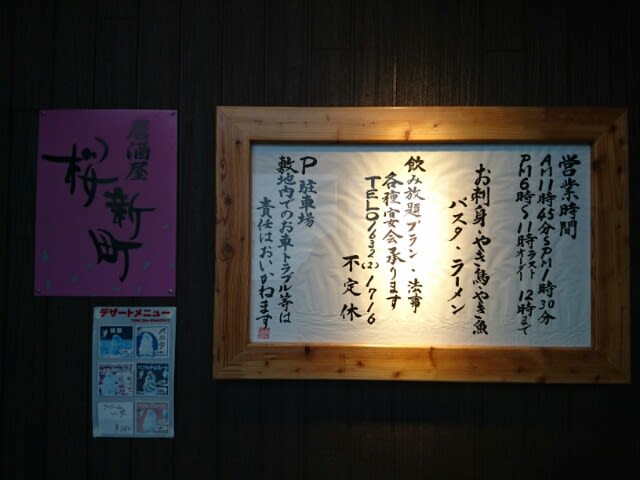 営業時間
AM11時45分〜PM1時30分
PM6時〜11時ラストオーダー 12時まで
お刺身・やき鳥・やき魚
パスタ・ラーメン
飲み放題プラン・法事
各種宴会承ります
TEL01632(2)1716
不定休
P駐車場
敷地内でのお車トラブル等は
責任はおいかねます
居酒屋
桜新町
デザートメニュー